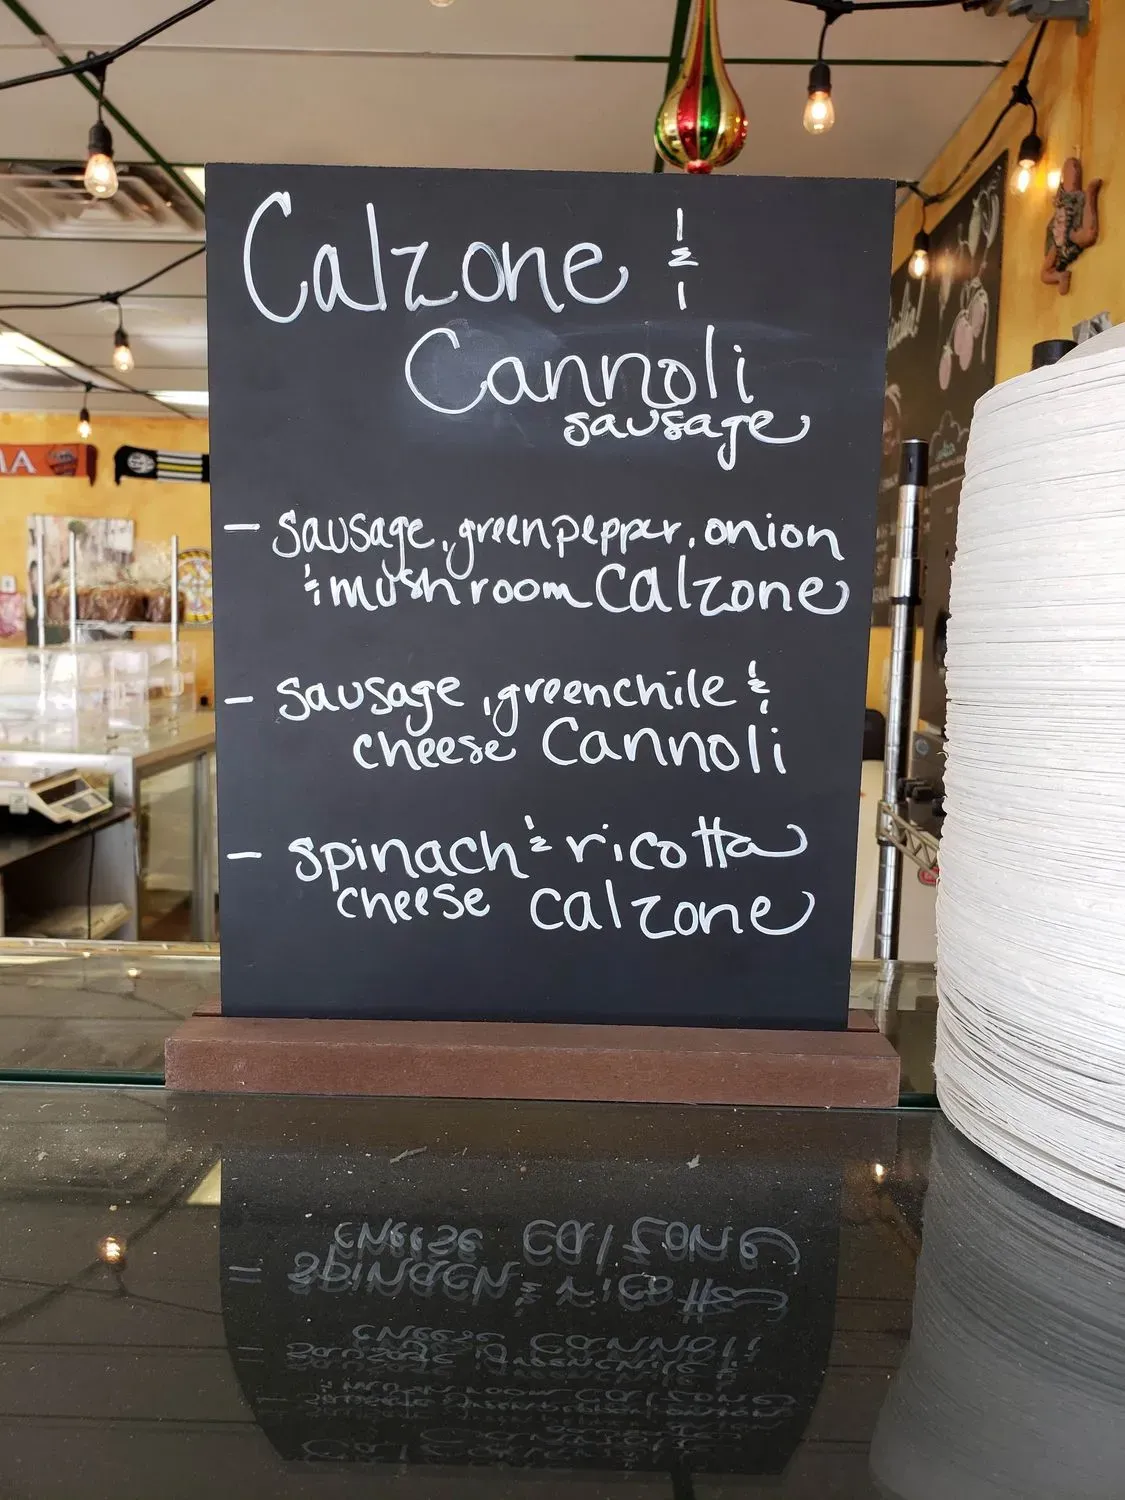 Calzone &
Cannoli
sausage
- sausage, greenpepper, onion
& mushroom Calzone
- sausage, greenchile &
cheese Cannoli
- spinach & ricotta
cheese calzone
MA